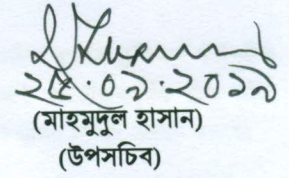 ২৫.০৯.২০১৯
(মাহমুদুল হাসান)
(উপসচিব)